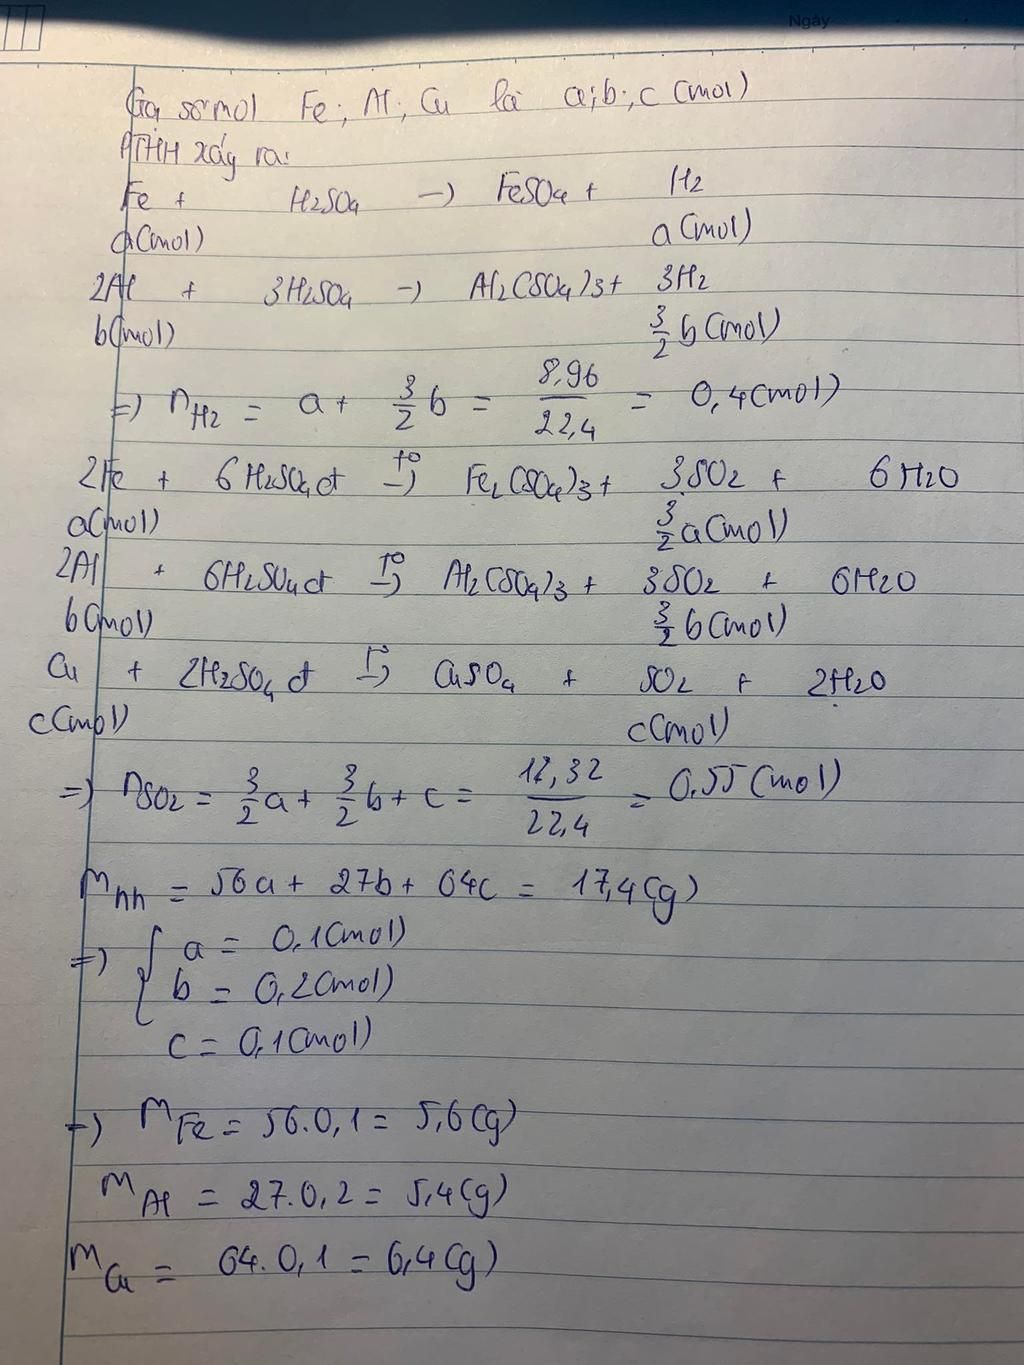 Ngày
Gọi số mol Fe; Al; Cu là a; b; c (mol)
PTHH xảy ra:
Fe + H2SO4 → FeSO4 + H2
a(mol) a(mol)
2Al + 3H2SO4 → Al2(SO4)3 + 3H2
b(mol) 3/2 b(mol)
=) nH2 = a + 3/2 b = 8,96/22,4 = 0,4(mol)
2Fe + 6H2SO4 đ t° → Fe2(SO4)3 + 3SO2 + 6H2O
a(mol) 3/2 a(mol)
2Al + 6H2SO4 đ t° → Al2(SO4)3 + 3SO2 + 6H2O
b(mol) 3/2 b(mol)
Cu + 2H2SO4 đ t° → CuSO4 + SO2 + 2H2O
c(mol) c(mol)
=) nSO2 = 3/2 a + 3/2 b + c = 12,32/22,4 = 0,55(mol)
mhh = 56a + 27b + 64c = 17,4(g)
=) { a = 0,1(mol)
b = 0,2(mol)
c = 0,1(mol)
=) mFe = 56.0,1 = 5,6(g)
mAl = 27.0,2 = 5,4(g)
mCu = 64.0,1 = 6,4(g)